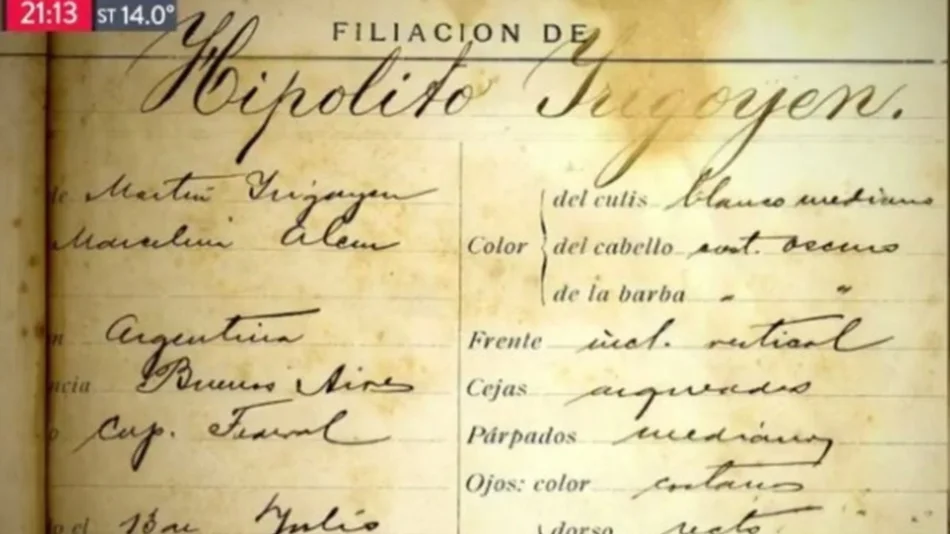 21:13 ST 14.0°
FILIACION DE
Hipolito Irigoyen.
de Martin Irigoyen
Marcelina Alem
Color
del cutis blanco mediano
del cabello cast. oscuro
de la barba " "
n Argentina
Frente incl. vertical
ncia Buenos Aires
Cejas arqueadas
o Cap. Federal
Párpados medianos
Ojos: color castaños
o el 13 de Julio
dorso recto